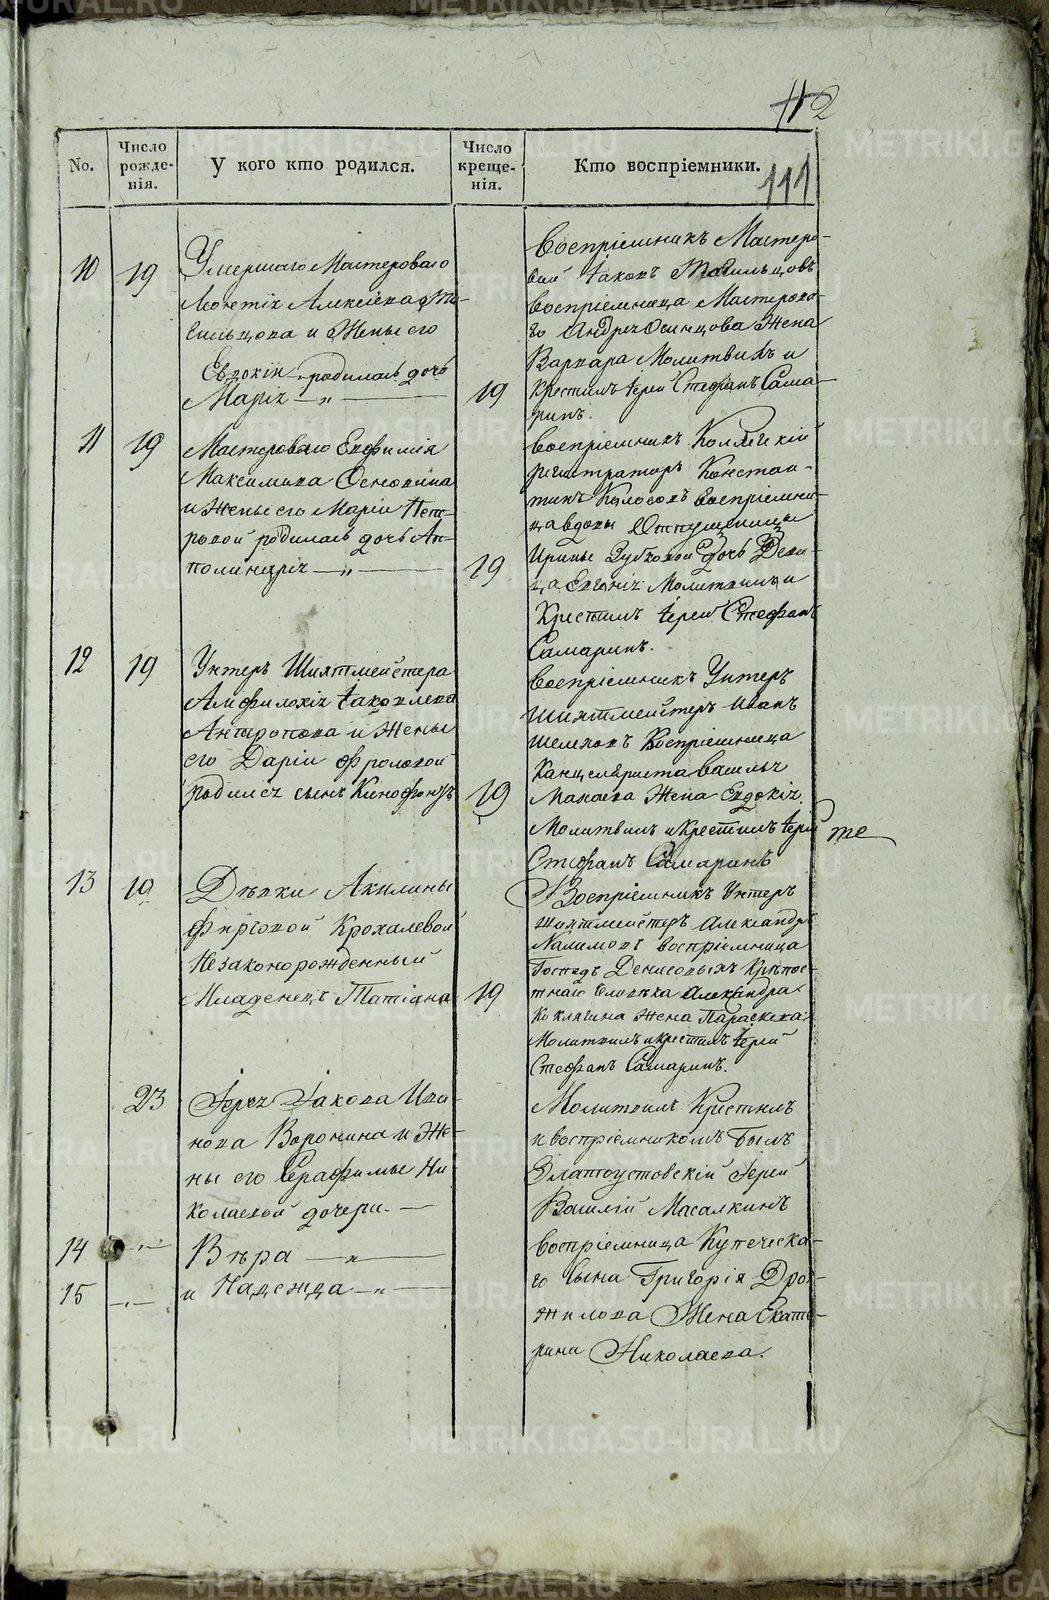 112
111
No.
Число рожде-нія.
У кого кто родился.
Число креще-нія.
Кто воспріемники.
10
19
Умершаго Мастероваго
Леонтія Алексіева Тя-
гильцова и Жены его
Евдокіи родилась дочь
Марія — „ —
19
Воспріемникъ Мастеро-
вый Іаковъ Тягильцовъ
воспріемница Мастерова-
го Андрея Осинцова Жена
Варвара Молитвилъ и
Крестилъ Іерей Стефанъ Сама-
ринъ.
11
19
Мастероваго Евфимія
Максимова
и Жены его Маріи Пет-
ровой родилась дочь Ап-
полинарія — „ —
19
Воспріемникъ Коллегскій
регистраторъ Констан-
тинъ Колосовъ Воспріемни-
ца вдовы
Ирины Зубковой дочь Деви-
ца Евгенія Молитвилъ и
Крестилъ Іерей Стефанъ
Самаринъ.
12
19
Унтеръ Шихтмейстера
Амфилохія Іаковлева
Антропова и Жены
его Даріи Фроловой
родился сынъ Кинофонтъ
19
Воспріемникъ Унтеръ
Шихтмейстеръ Иванъ
Шелеховъ Воспріемница
Канцеляриста Василья
Макаева Жена Евдокія.
Молитвилъ и Крестилъ Іерей
те
Стефанъ Самаринъ
13
19
Дѣвки Акилины
Фирсовой Крохалевой
Незаконорожденный
Младенецъ Татіана
19
Воспріемникъ Унтеръ
Шихтмейстеръ Александръ
Налимовъ воспріемница
Господъ Денисовыхъ Крѣпос-
тнаго человѣка Александра
Коклягина Жена Параскева
Молитвилъ и крестилъ Іерей
Стефанъ Самаринъ.
23
Іерея Іакова Ива-
нова Воронина и Же-
ны его Серафимы Ни
колаевой дочери. —
14
— „ —
Вѣра — „ —
15
— „ —
и Надежда — „ —
Молитвилъ Крестилъ
и воспріемникомъ былъ
Златоустовскій Іерей
Василій Масалкинъ
Воспріемница Купеческа-
го Сына Григорія Дро-
жилова Жена Екате-
рина Николаева.
METRIKI.GASO-URAL.RU